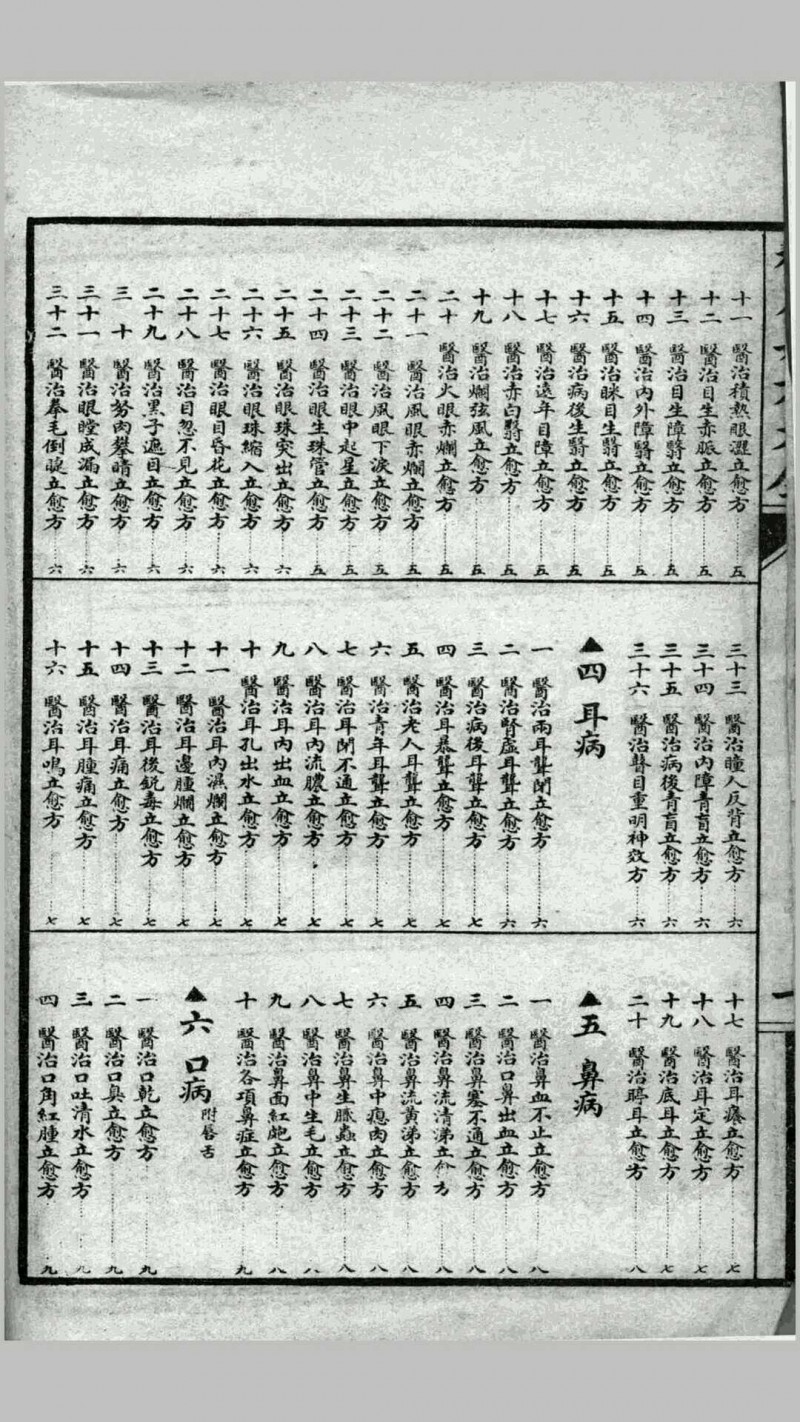 十一 醫治積熱眼澀立愈方 五
十二 醫治目生赤脈立愈方 五
十三 醫治目生障翳立愈方 五
十四 醫治內外障翳立愈方 五
十五 醫治眯目生翳立愈方 五
十六 醫治病後生翳立愈方 五
十七 醫治遠年目障立愈方 五
十八 醫治赤白翳立愈方 五
十九 醫治爛弦風立愈方 五
二十 醫治火眼赤爛立愈方 五
二十一 醫治風眼赤爛立愈方 五
二十二 醫治風眼下淚立愈方 五
二十三 醫治眼中起星立愈方 五
二十四 醫治眼生珠管立愈方 五
二十五 醫治眼珠突出立愈方 六
二十六 醫治眼珠縮入立愈方 六
二十七 醫治眼目昏花立愈方 六
二十八 醫治目忽不見立愈方 六
二十九 醫治黑子遮目立愈方 六
三十 醫治努肉攀睛立愈方 六
三十一 醫治眼瞠成漏立愈方 六
三十二 醫治拳毛倒睫立愈方 六
三十三 醫治瞳人反背立愈方 六
三十四 醫治內障青盲立愈方 六
三十五 醫治病後青盲立愈方 六
三十六 醫治瞽目重明神效方 六
▲四 耳病
一 醫治兩耳聾閉立愈方 六
二 醫治腎虛耳聾立愈方 六
三 醫治病後耳聾立愈方 七
四 醫治耳暴聾立愈方 七
五 醫治老人耳聾立愈方 七
六 醫治青年耳聾立愈方 七
七 醫治耳閉不通立愈方 七
八 醫治耳內流膿立愈方 七
九 醫治耳內出血立愈方 七
十 醫治耳孔出水立愈方 七
十一 醫治耳內濕爛立愈方 七
十二 醫治耳邊腫爛立愈方 七
十三 醫治耳後銳毒立愈方 七
十四 醫治耳痛立愈方 七
十五 醫治耳腫痛立愈方 七
十六 醫治耳鳴立愈方 七
十七 醫治耳癢立愈方 七
十八 醫治耳定立愈方 七
十九 醫治底耳立愈方 七
二十 醫治聤耳立愈方 八
▲五 鼻病
一 醫治鼻血不止立愈方 八
二 醫治口鼻出血立愈方 八
三 醫治鼻塞不通立愈方 八
四 醫治鼻流清涕立愈方 八
五 醫治鼻流黃涕立愈方 八
六 醫治鼻中瘜肉立愈方 八
七 醫治鼻生䘌蟲立愈方 八
八 醫治鼻中生毛立愈方 八
九 醫治鼻面紅皰立愈方 八
十 醫治各項鼻症立愈方 九
▲六 口病 附唇舌
一 醫治口乾立愈方 九
二 醫治口臭立愈方 九
三 醫治口吐清水立愈方 九
四 醫治口角紅腫立愈方 九